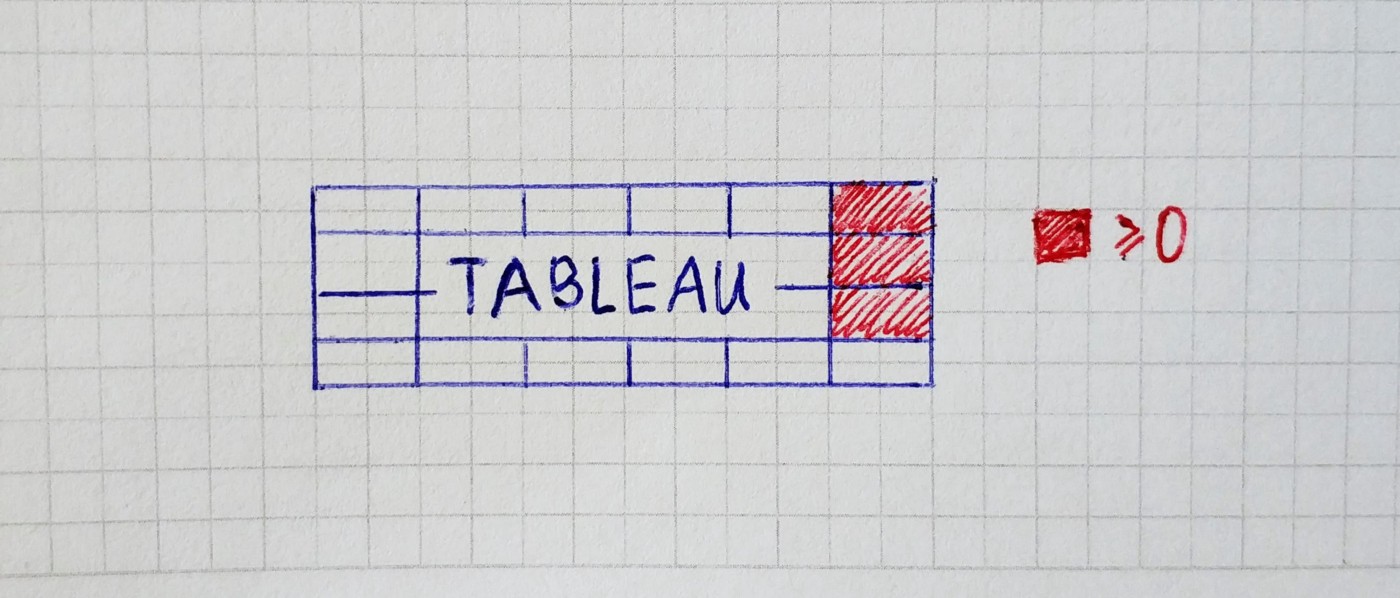 TABLEAU
⩾0